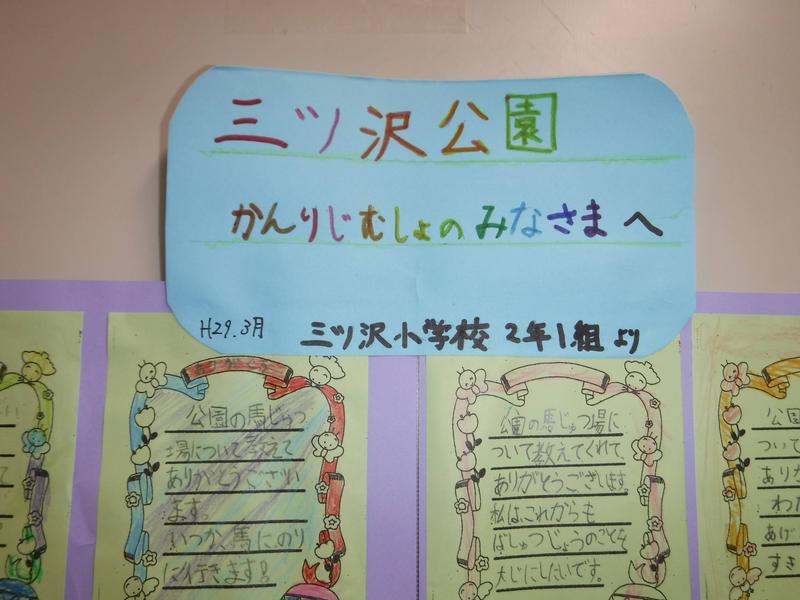 三ツ沢公園
かんりじむしょのみなさまへ
H29.3月
三ツ沢小学校 2年1組より
公園の馬じゅつ
場について教えて
ありがとうござい
ます。
いつか、馬にのり
に行きます!
公園の馬じゅつ場に
ついて教えてくれて、
ありがとうございます。
私は、これからも
ばしゅつじょうのことを
大じにしたいです。
公園
ついて
ありか
わた
あげ
すき